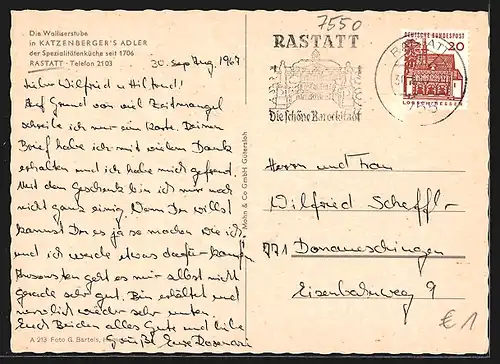 Die Walliserstube
in KATZENBERGER'S ADLER
der Spezialitätenküche seit 1706
RASTATT · Telefon 2103
30. Aug. 1967
Lieber Wilfried u Hiltrud!
Auf Grund von viel Zeitmangel
schreibe ich nur eine Karte. Deinen
Brief habe ich mit vielem Dank
erhalten und ich habe mich gefreut.
Mit dem Geschenk bin ich mir noch
nicht ganz einig. Wenn Du willst
kannst Du es ja so machen wie ich
und ich werde etwas dafür kaufen
Ansonsten geht es mir selbst nicht
gerade sehr gut. Bin erkältet und
wieder sehr unten.
Euch Beiden alles Gute und liebe
Grüße Eure Rosemarie
A 213 Foto G. Bartels,
Mohn & Co GmbH Gütersloh
7550
RASTATT
Die schöne Barockstadt
RASTATT
DEUTSCHE BUNDESPOST
20
LORSCH/HESSEN
Herrn und Frau
Wilfried Scheffl-
771 Donaueschingen
Eisenbahnweg 9
€ 1